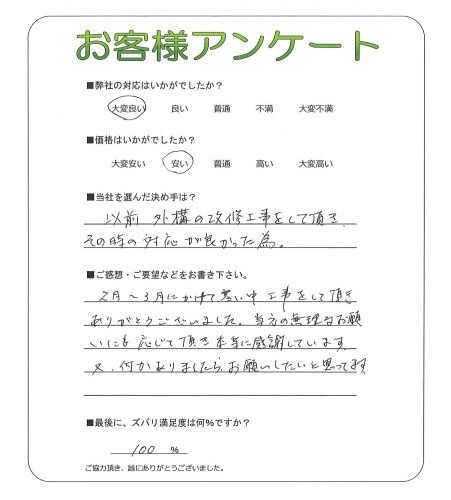 お客様アンケート
■弊社の対応はいかがでしたか？
大変良い 良い 普通 不満 大変不満
■価格はいかがでしたか？
大変安い 安い 普通 高い 大変高い
■当社を選んだ決め手は？
以前 外構の改修工事をして頂き
その時の対応が良かった為。
■ご感想・ご要望などをお書き下さい。
2月～3月にかけて寒い中 工事をして頂き
ありがとうございました。当方の無理なお願
いにも応じて頂き本当に感謝しています
又、何かありましたら、お願いしたいと思ってます
■最後に、ズバリ満足度は何％ですか？
100 ％
ご協力頂き、誠にありがとうございました。